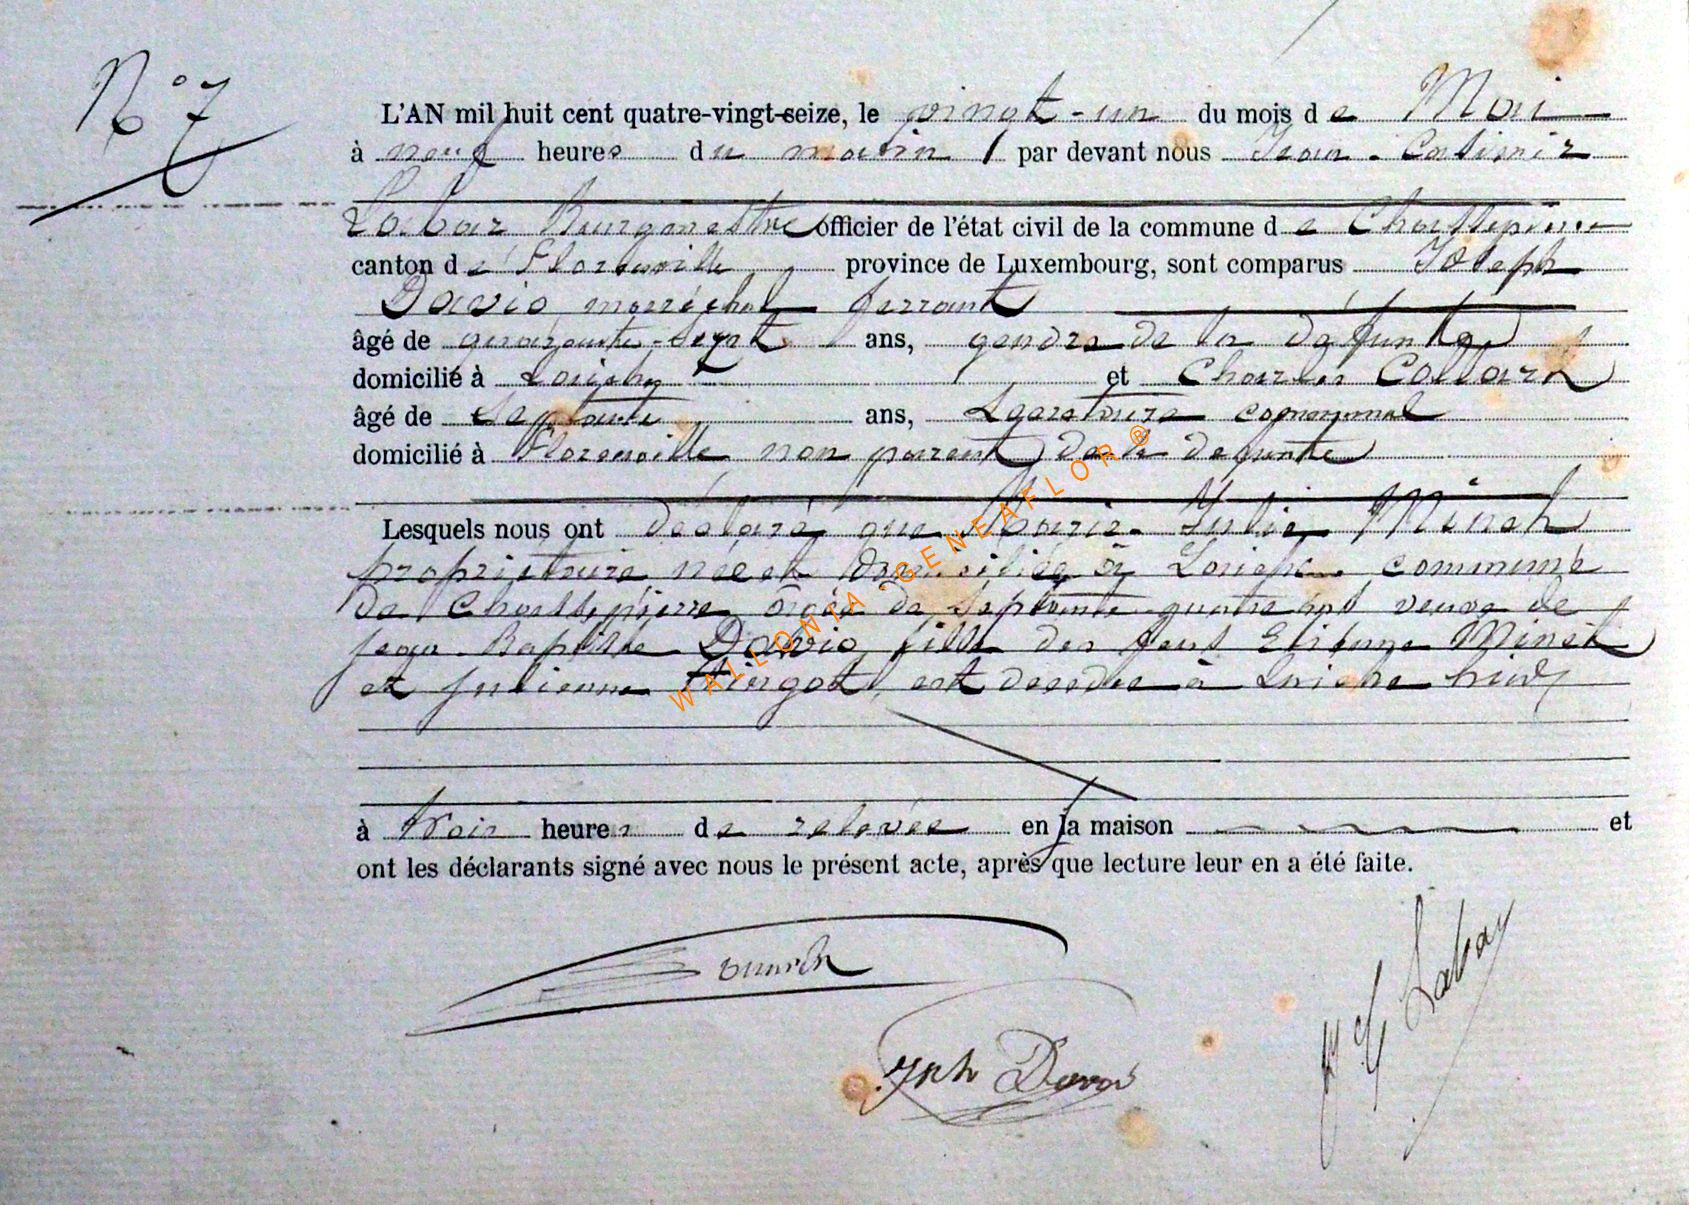 N° 7
L'AN mil huit cent quatre-vingt-seize, le vingt-un du mois de Mai
à neuf heures du matin par devant nous Jean-Casimir
Labar Bourgmestre officier de l'état civil de la commune de Chassepierre
canton de Florenville province de Luxembourg, sont comparus Joseph
David maréchal ferrant
âgé de quarante-sept ans, gendre de la défunte
domicilié à et Charles Collard
âgé de Septante ans, Sgeretaire communal
domicilié à Florenville non parent de la defunte
Lesquels nous ont déclaré que Marie-Julie Minet
propriétaire née et domiciliée à commune
de Chassepierre âgée de Septante-quatre ans veuve de
Jean-Baptiste David fille des feus Etienne Minet
et Julienne est decedée à hier
à trois heures de relevée en la maison et
ont les déclarants signé avec nous le présent acte, après que lecture leur en a été faite.
Jph David
WALLONIA-GENEAFLOR®